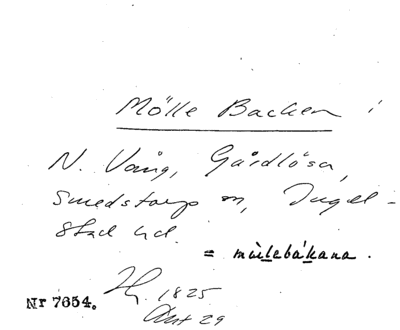 Mölle Backen i
N. Vång, Gårdlösa,
Smedstorp sn, Ingel-
stad hd.
= mùlebákana.
1825
Nr 7654.
Akt 29